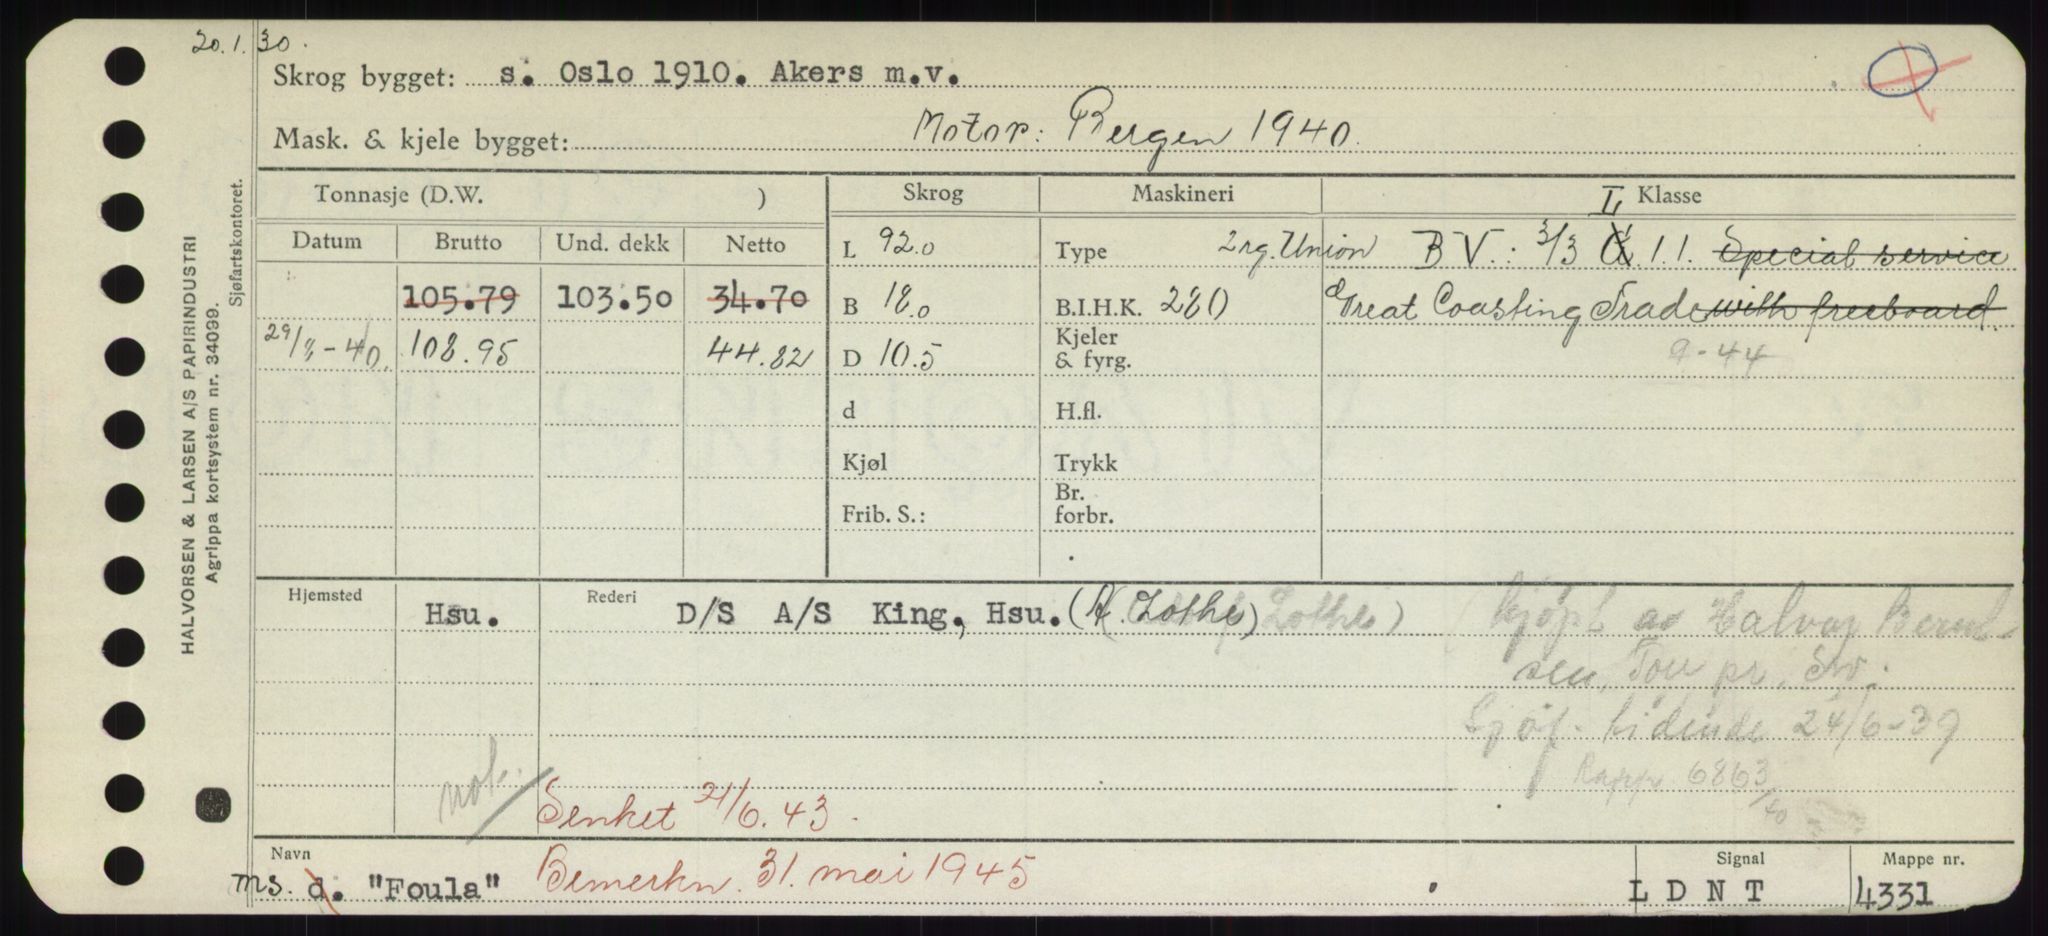 20.1.30.
Skrog bygget: s. Oslo 1910. Akers m.v.
Mask. & kjele bygget: Motor: Bergen 1940.
Tonnasje (D.W. ) Skrog Maskineri L Klasse
Datum Brutto Und. dekk Netto L 92.0 Type 2 rg. Union BV.: 3/3 1.1. Special service
105.79 103.50 34.70 B 18.0 B.I.H.K. 280 Great Coasting Trade with freeboard.
29/8-40. 108.95 44.82 D 10.5 Kjeler & fyrg. 9-44
d H.fl.
Kjøl Trykk
Frib. S.: Br. forbr.
Hjemsted Hsu. Rederi D/S A/S King, Hsu. (A. Lothe) Lothe) (kjøpt av Halvor Bernt-
sen, Tou pr. Sv.
Sjøf. tidende 24/6-39
Rapp. 6863/40
not.
Senket 21/6.43.
Navn ms. d. "Foula" Bemerkn. 31. mai 1945 Signal LDNT Mappe nr. 4331
HALVORSEN & LARSEN A/S PAPIRINDUSTRI
Agrippa kortsystem nr. 34099.
Sjøfartskontoret.